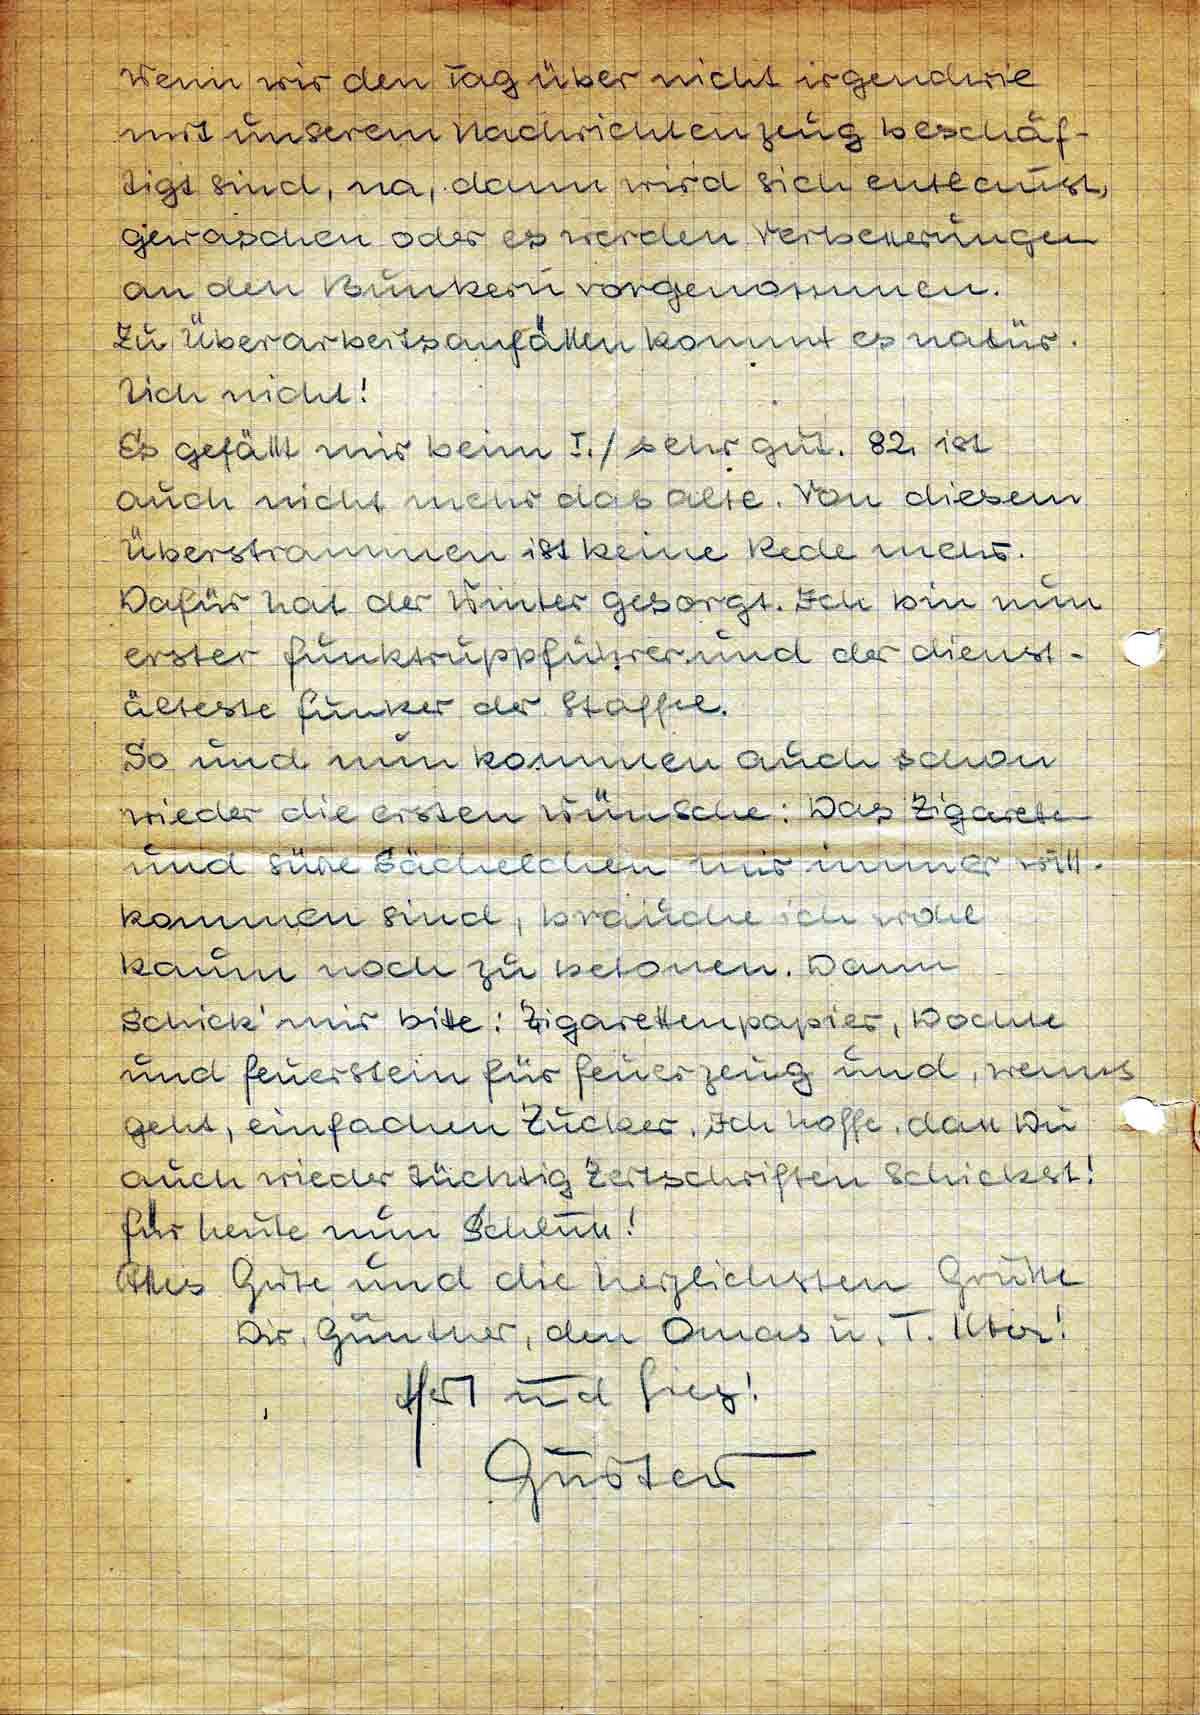 Wenn wir den Tag über nicht irgendwie
mit unserem Nachrichtenzeug beschäf-
tigt sind, na, dann wird sich entlaust,
gewaschen oder es werden Verbesserungen
an den Bunkern vorgenommen.
Zu Überarbeitsanfällen kommt es natür-
lich nicht!
Es gefällt mir beim I./ sehr gut. 82. ist
auch nicht mehr das alte. Von diesem
Überstrammen ist keine Rede mehr.
Dafür hat der Winter gesorgt. Ich bin nun
erster Funktruppführer und der dienst-
älteste Funker der Staffel.
So und nun kommen auch schon
wieder die ersten Wünsche: Das Zigareten
und süße Sächelchen mir immer will-
kommen sind, brauche ich wohl
kaum noch zu betonen. Dann
Schick' mir bitte: Zigarettenpapier, Dochte
und Feuerstein für Feuerzeug und, wenns
geht, einfachen Zucker. Ich hoffe, daß Du
auch wieder tüchtig Zeitschriften schickst!
Für heute nun Schluß!
Alles Gute und die herzlichsten Grüße
Dir, Günther, den Omas u. T.
und